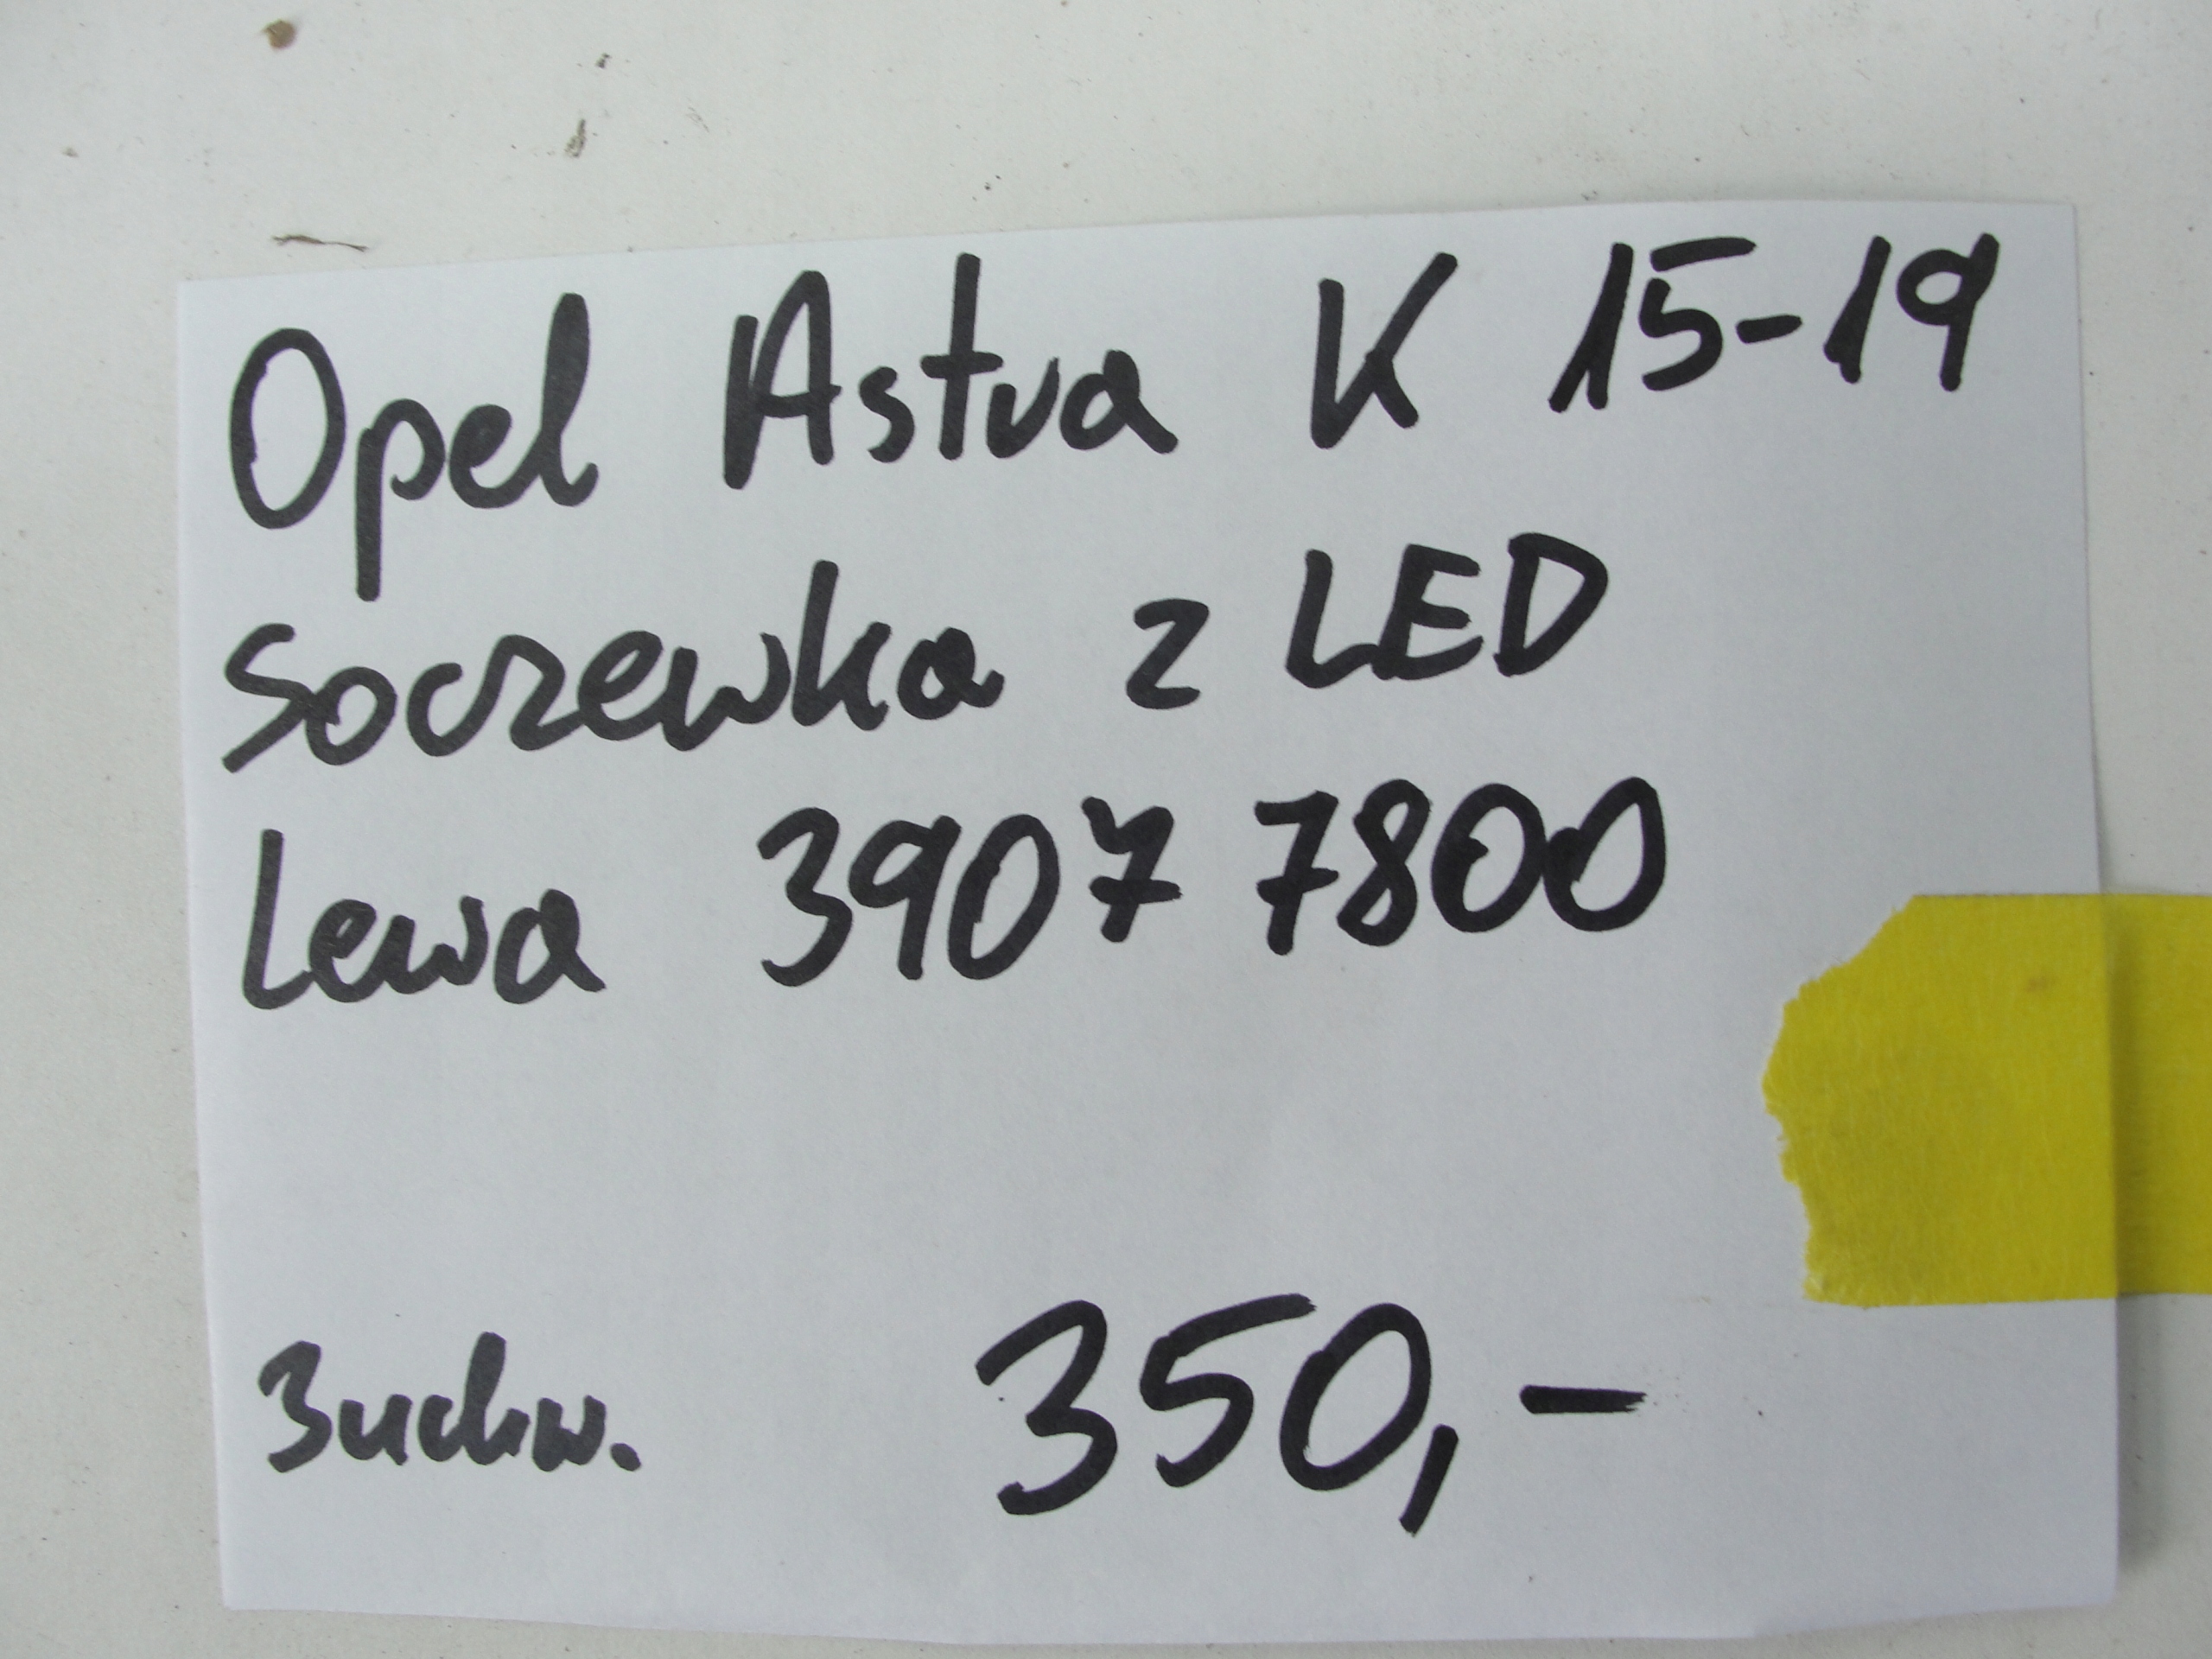 Opel Astra K 15-19
Soczewka z LED
Lewa 3907 7800
350,-